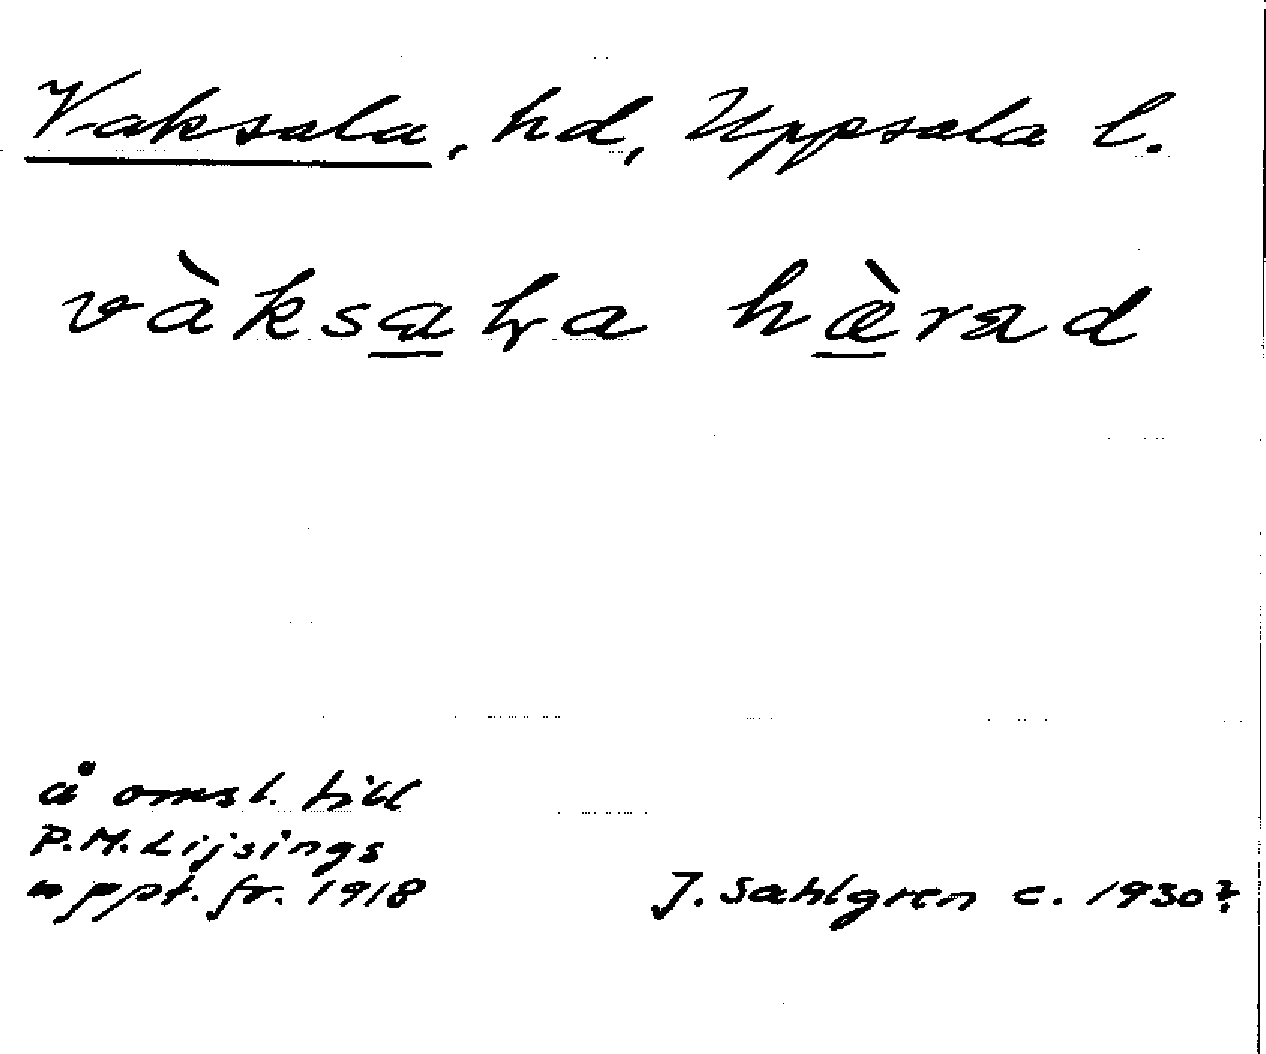 Vaksala, hd, Uppsala l.
vàksaɽa hæ̀rad
å omsl. till
P.M. Lijsings
uppt. fr. 1918
J. Sahlgren c. 1930?